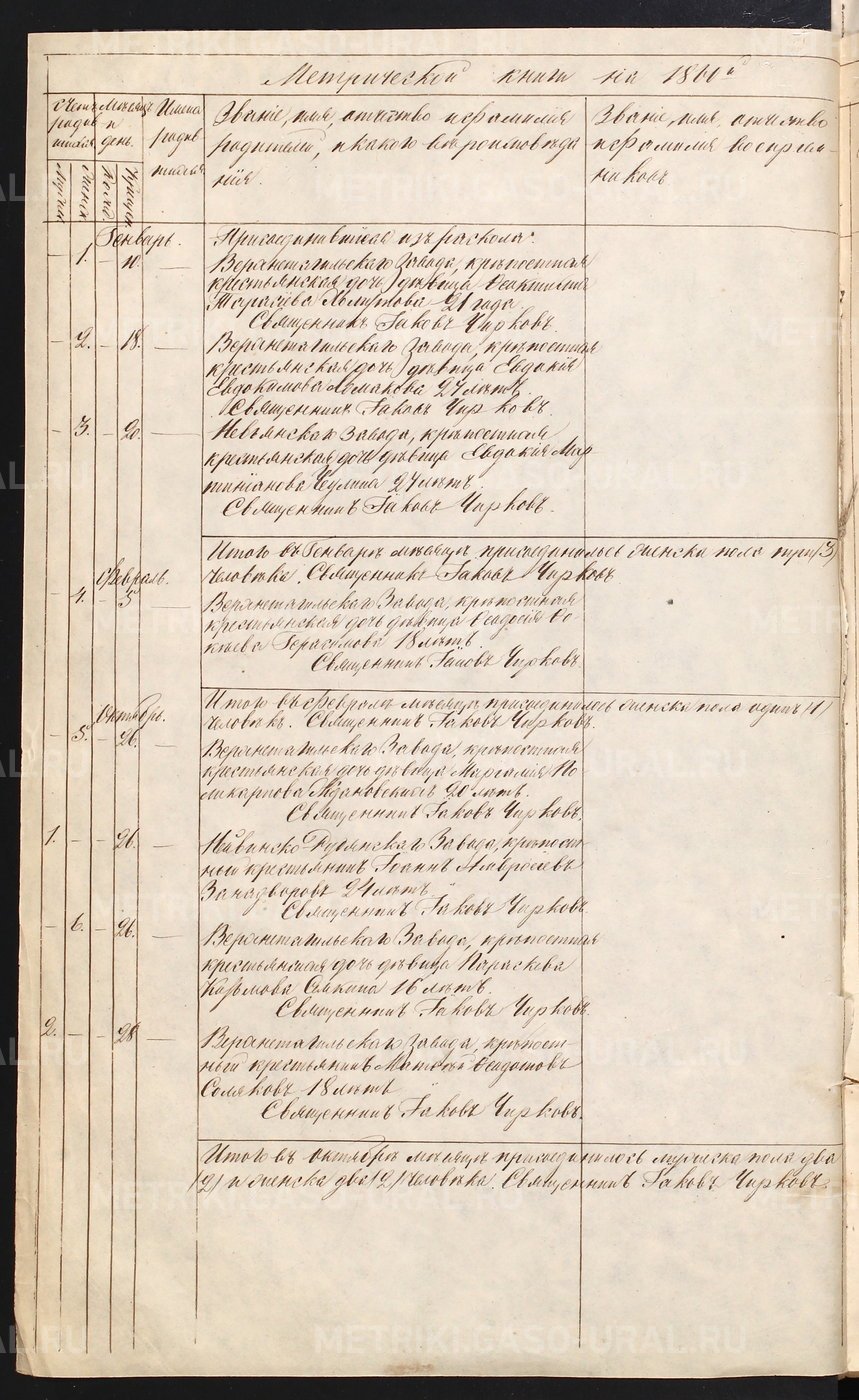 Метрической книги на 1860й
Счетъ родившихся
Месяцъ и день.
Имена родившихся
Званіе, имя, отчество и фамилія
родителей, и какого вѣроисповѣда
нія.
Званіе, имя, отчество
и фамилія воспріем
никовъ.
Мужска
Женска
Рожд.
Крещен.
Генварь.
Присоединившіеся изъ раскола.
1. 10. Верхнетагильскаго завода, крѣпостная
крестьянская дочь дѣвица Феоктиста
Тарасова 21 года.
Священникъ Іаковъ Чирковъ.
2. 18. Верхнетагильскаго завода, крѣпостная
крестьянская дочь дѣвица Евдокія
Евдокимова 27 лѣтъ.
Священникъ Іаковъ Чирковъ.
3. 20. Невьянскаго Завода, крѣпостная
крестьянская дочь дѣвица Евдокія Мар
тиніанова 27 лѣтъ.
Священникъ Іаковъ Чирковъ.
Итого въ Генварѣ мѣсяцѣ присоединилось женска пола три (3)
человѣка. Священникъ Іаковъ Чирковъ.
Февраль.
4. 5 Верхнетагильскаго Завода, крѣпостная
крестьянская дочь дѣвица Феодосія Фо-
Герасимова 18 лѣтъ.
Священникъ Іаковъ Чирковъ
Итого въ Февралѣ мѣсяцѣ присоединилось женска пола одинъ (1)
человѣкъ. Священникъ Іаковъ Чирковъ.
Октябрь.
5. 26. Верхнетагильскаго Завода, крѣпостная
крестьянская дочь дѣвица По-
ликарпова 20 лѣтъ.
Священникъ Іаковъ Чирковъ.
1. 26. Завода, крѣпост-
ный крестьянинъ Іоаннъ Амвросіевъ
Занадворовъ 24 лѣтъ.
Священникъ Іаковъ Чирковъ.
6. 26. Верхнетагильскаго Завода, крѣпостная
крестьянская дочь дѣвица Параскева
Козьмова 16 лѣтъ.
Священникъ Іаковъ Чирковъ.
2. 28. Верхнетагильскаго завода, крѣпост-
ный крестьянинъ Матѳей Феодотовъ
Соляковъ 18 лѣтъ
Священникъ Іаковъ Чирковъ.
Итого въ октябрѣ мѣсяцѣ присоединилось мужска пола два
(2) и женска два (2) человѣка. Священникъ Іаковъ Чирковъ.
METRIKI.GASO-URAL.RU